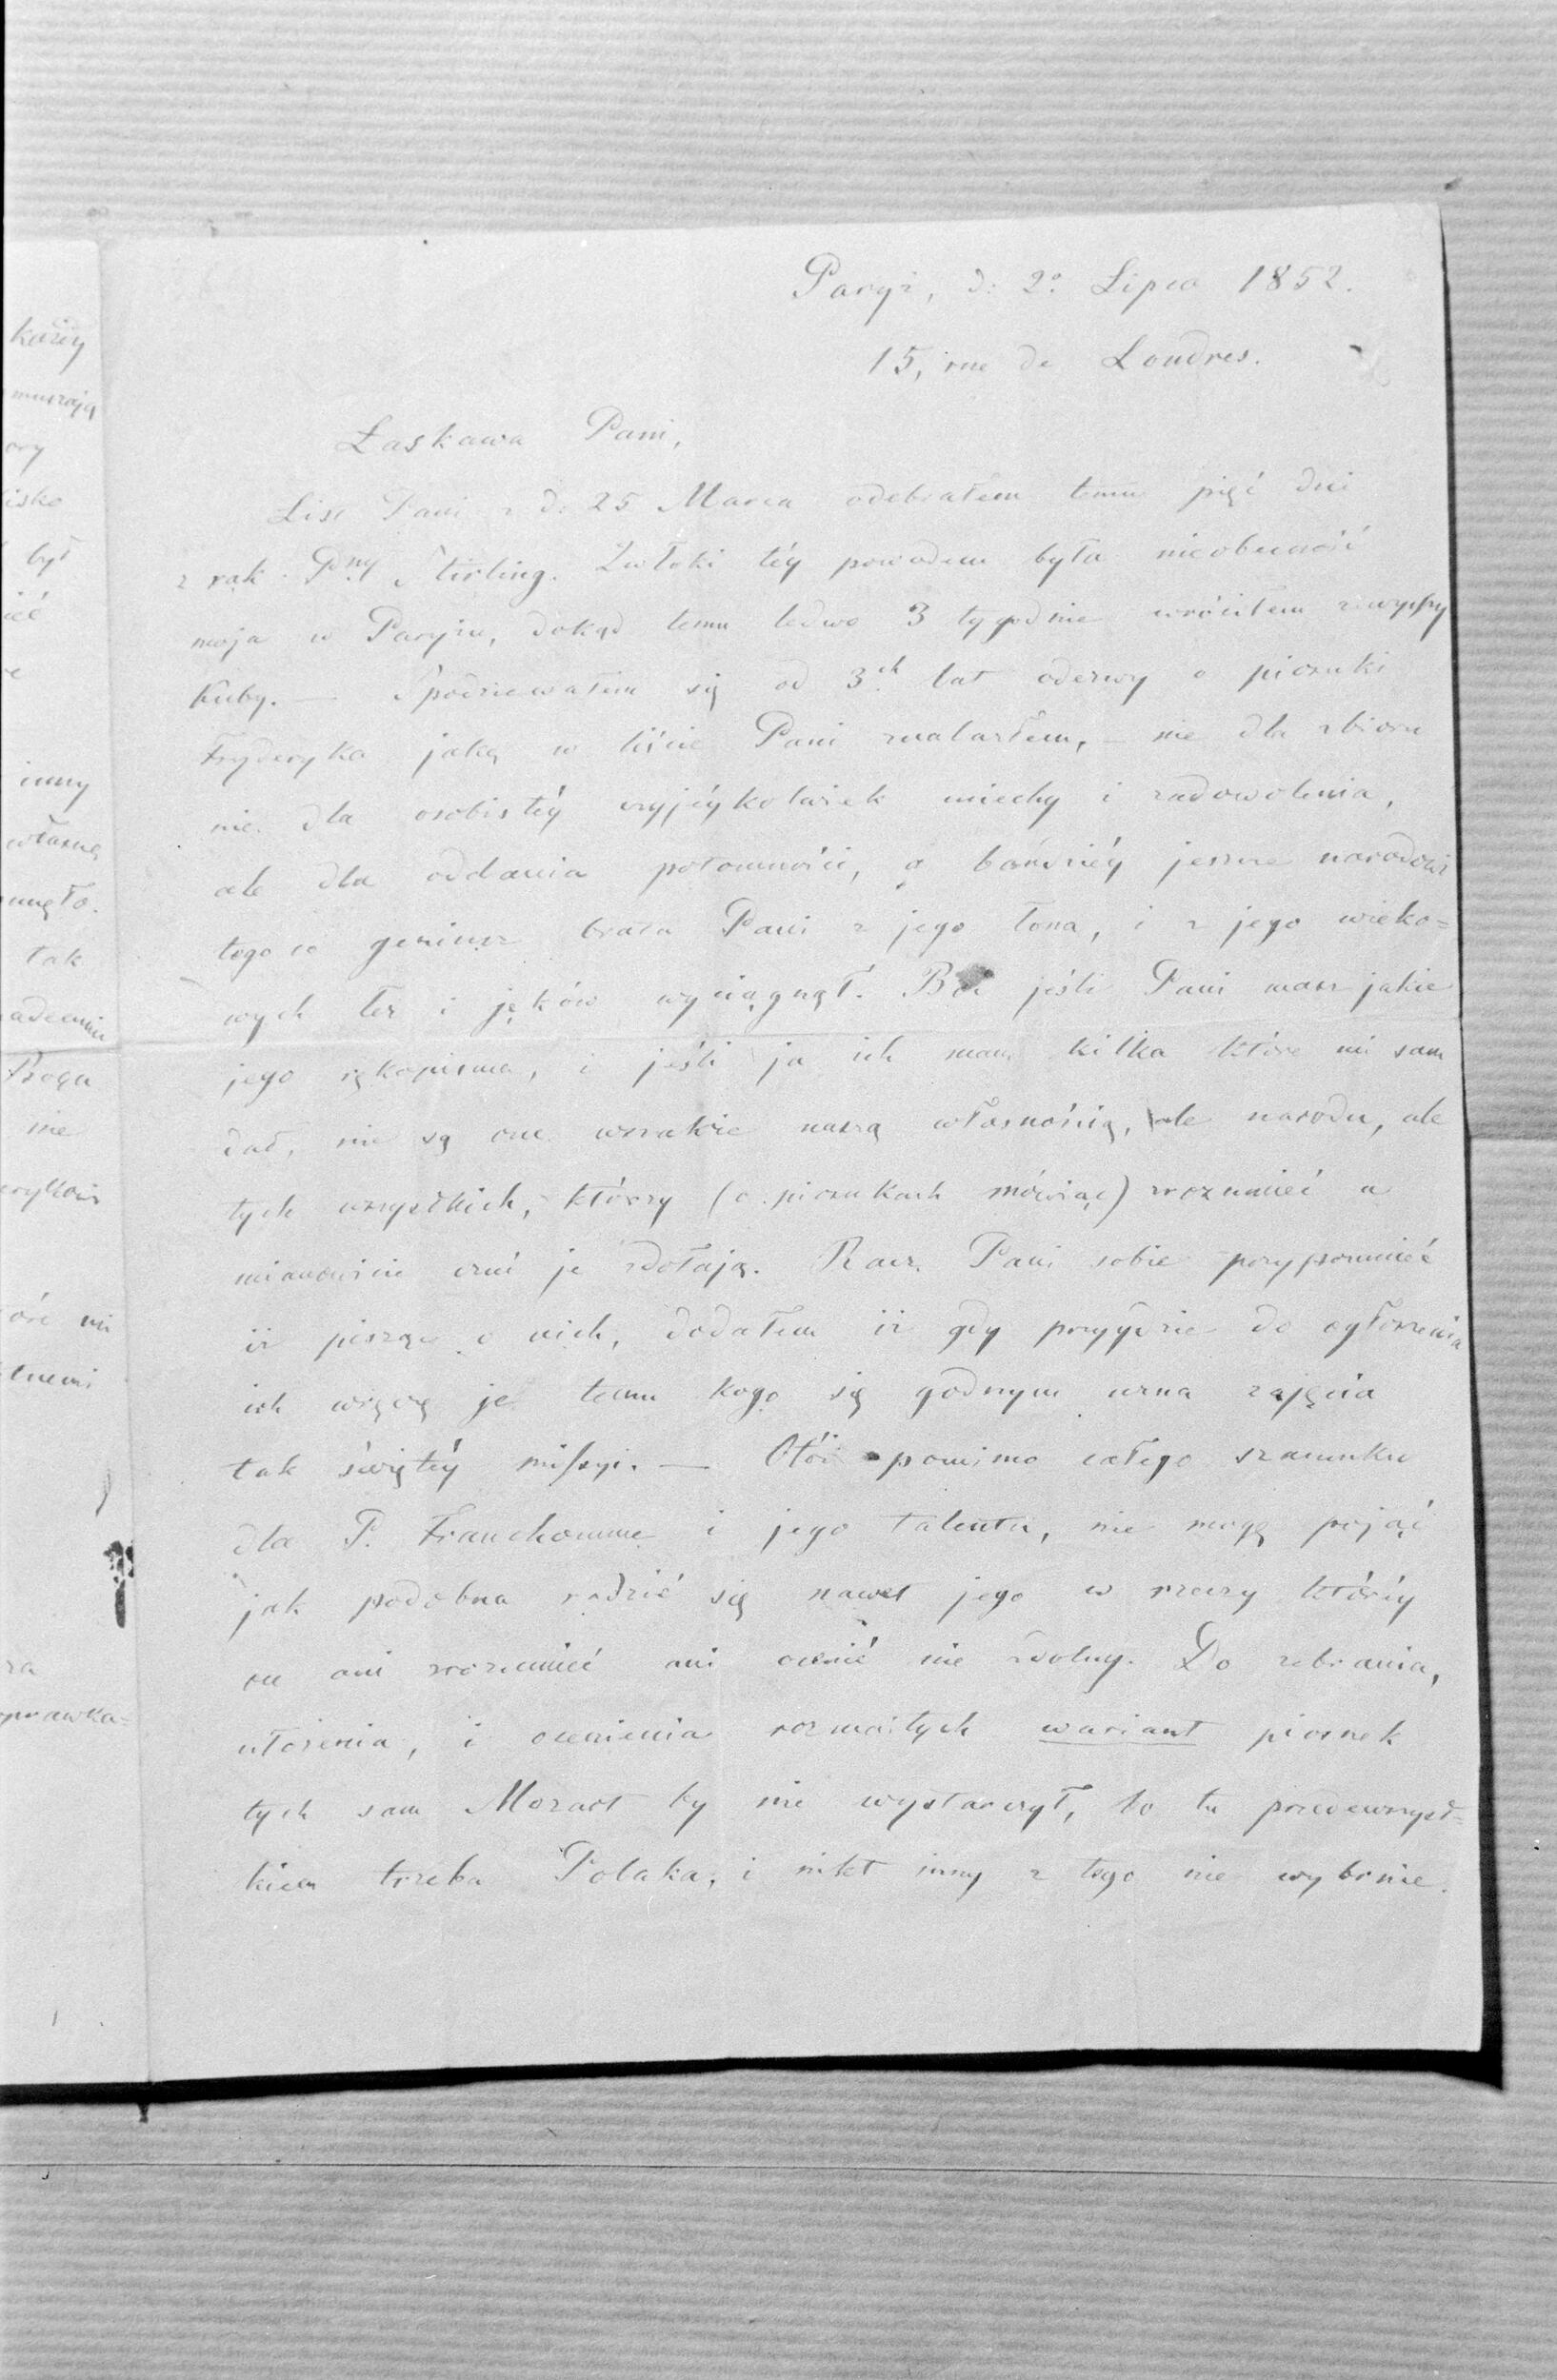 Paryż, d: 2º Lipca 1852.
15, rue de Londres.
Łaskawa Pani,
List Pani z d: 25 Marca odebrałem temu pięć dni
z rąk Pny Stirling. Zwłoki téy powodem była nieobecność
moja w Paryżu, dokąd temu ledwo 3 tygodnie wróciłem z wyspy
Kuby. — Spodziewałem się od 3ch lat odezwy o piosnki
Fryderyka jaką w liście Pani znalazłem, – nie dla zbioru
nie dla osobistéy czyjéykolwiek uciechy i zadowolenia,
ale dla oddania potomności, a bardziéy jeszcze narodowi
tego co geniusz brata Pani z jego łona, i z jego wieko=
wych łez i jęków wyciągnął. Bo jeśli Pani masz jakie
jego rękopisma, i jeśli ja ich mam kilka które mi sam
dał, nie są one wszakże naszą własnością, ale narodu, ale
tych wszystkich, którzy (o piosnkach mówiąc) zrozumieć a
mianowicie czuć je zdołają. Racz Pani sobie przypomnieć
iż pisząc o nich, dodałem iż gdy przyydzie do ogłoszenia
ich wręczę je temu kogo się godnym uzna zajęcia
tak świętéy missyi. — Otóż pomimo całego szacunku
dla P. Franchomme i jego talentu, nie mogę pojąć
jak podobna radzić się nawet jego w rzeczy któréy
on ani zrozumieć ani ocenić nie zdolny. Do zebrania,
ułożenia, i ocenienia rozmaitych wariant piosnek
tych sam Mozart by nie wystarczył, bo tu przedewszyst=
kiem trzeba Polaka, i nikt inny z tego nie wybrnie.
każéy
muszają
ory
isko
był
ieć
inny
własną
nęło.
tak
Bogu
nie
óre mi
za
prawka=